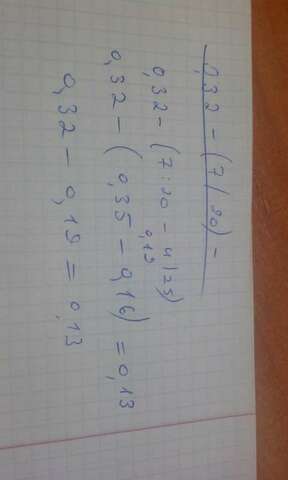 0,32 - (7/20) -
0,32 - (7:20 - 4/25)
0,19
0,32 - (0,35 - 0,16) = 0,13
0,32 - 0,19 = 0,13